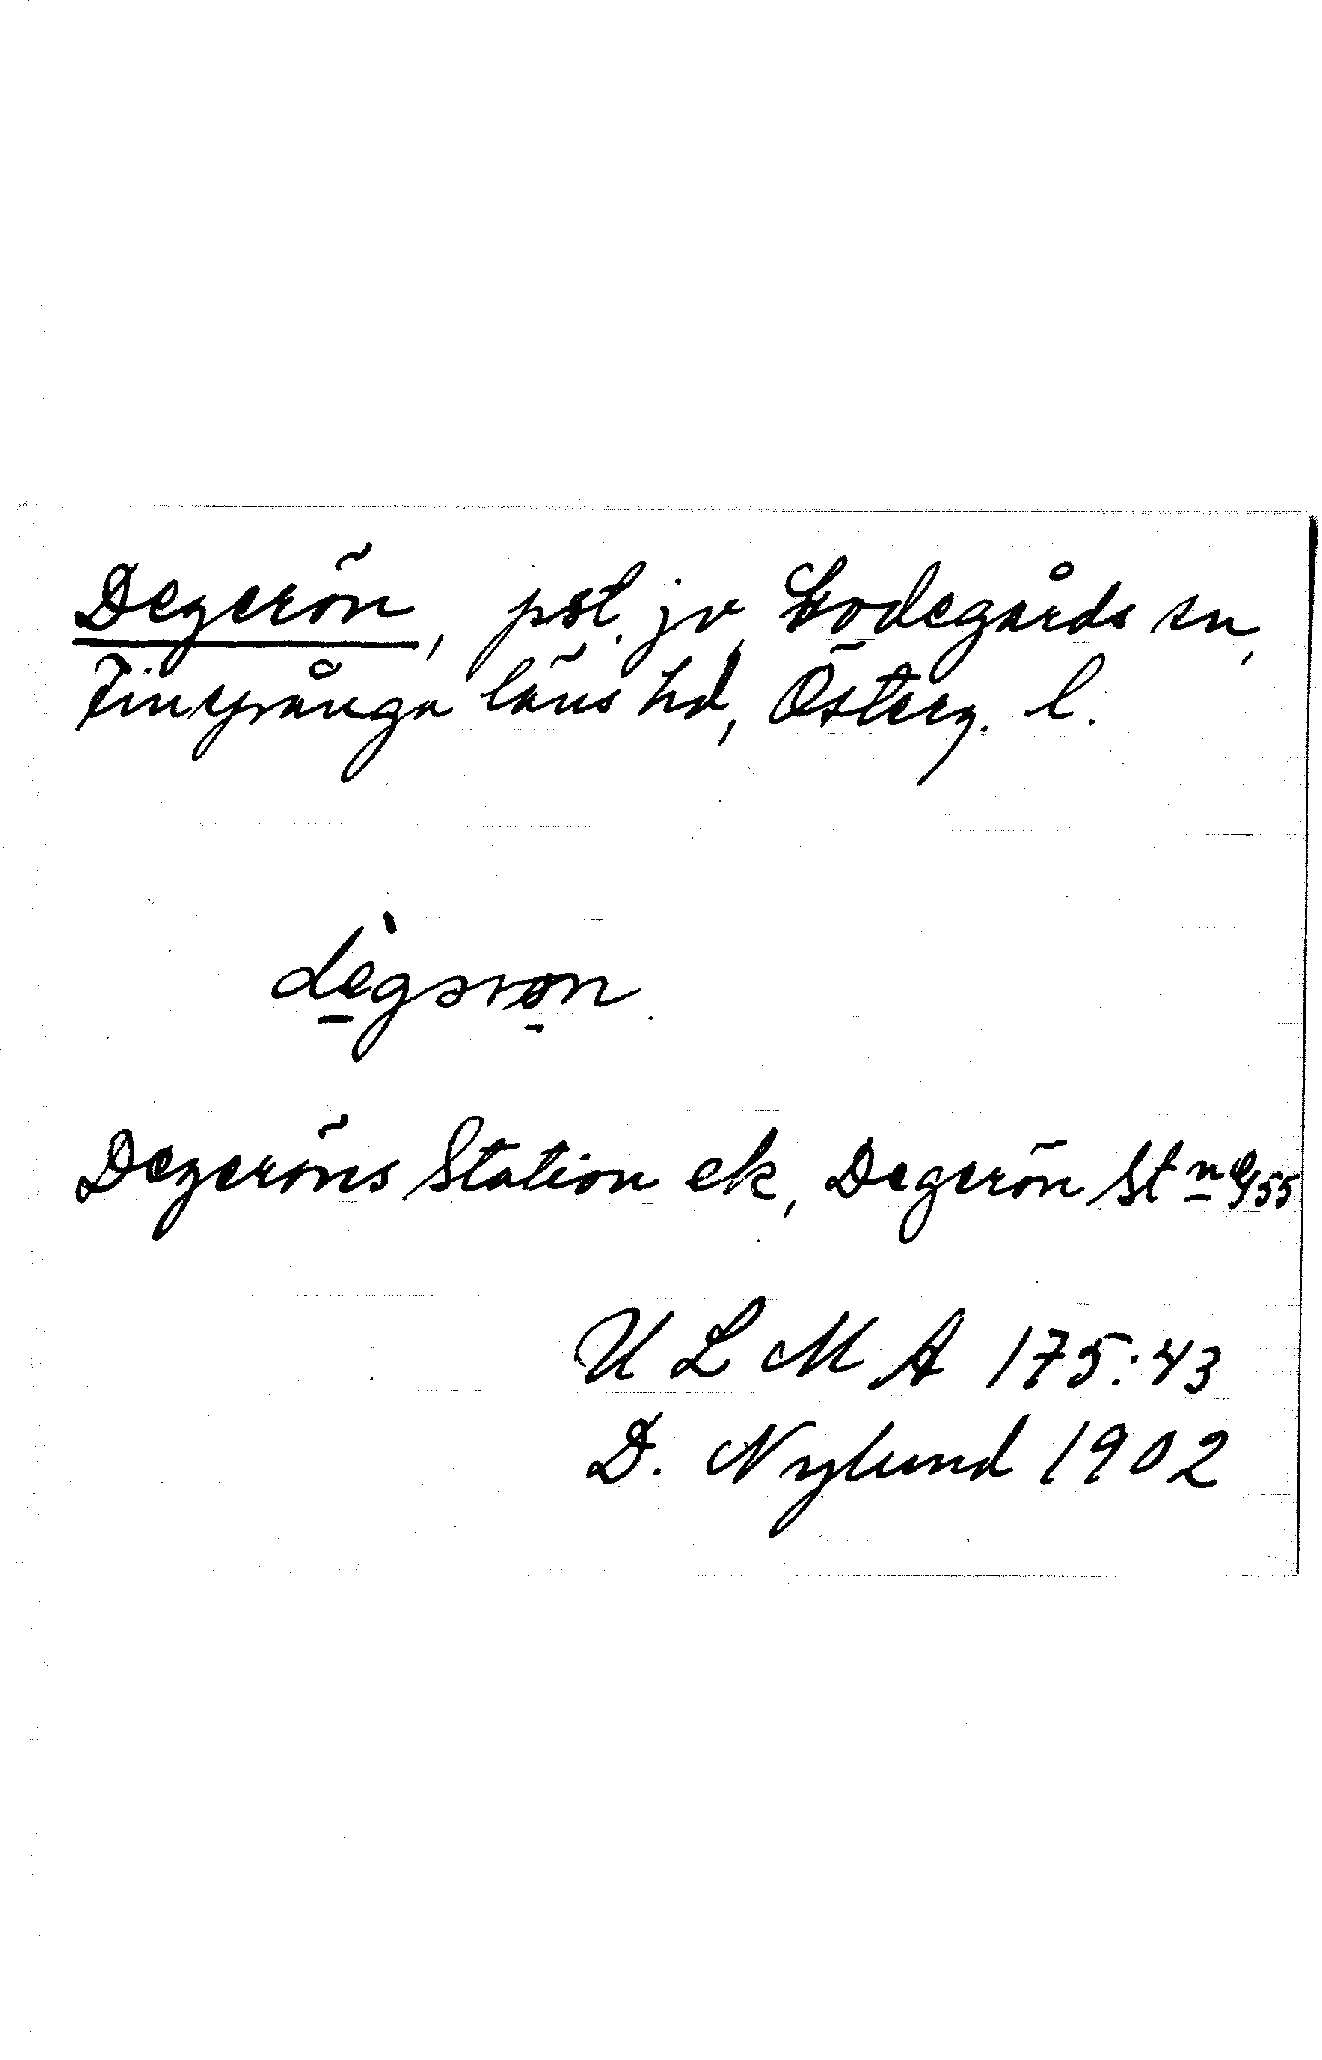 Degerön, pst. jv, Godegårds sn,
Finspånga läns hd, Österg. l.
dègərøn.
Degeröns Station ek, Degerön St
U L M A 175:43
D. Nylund 1902